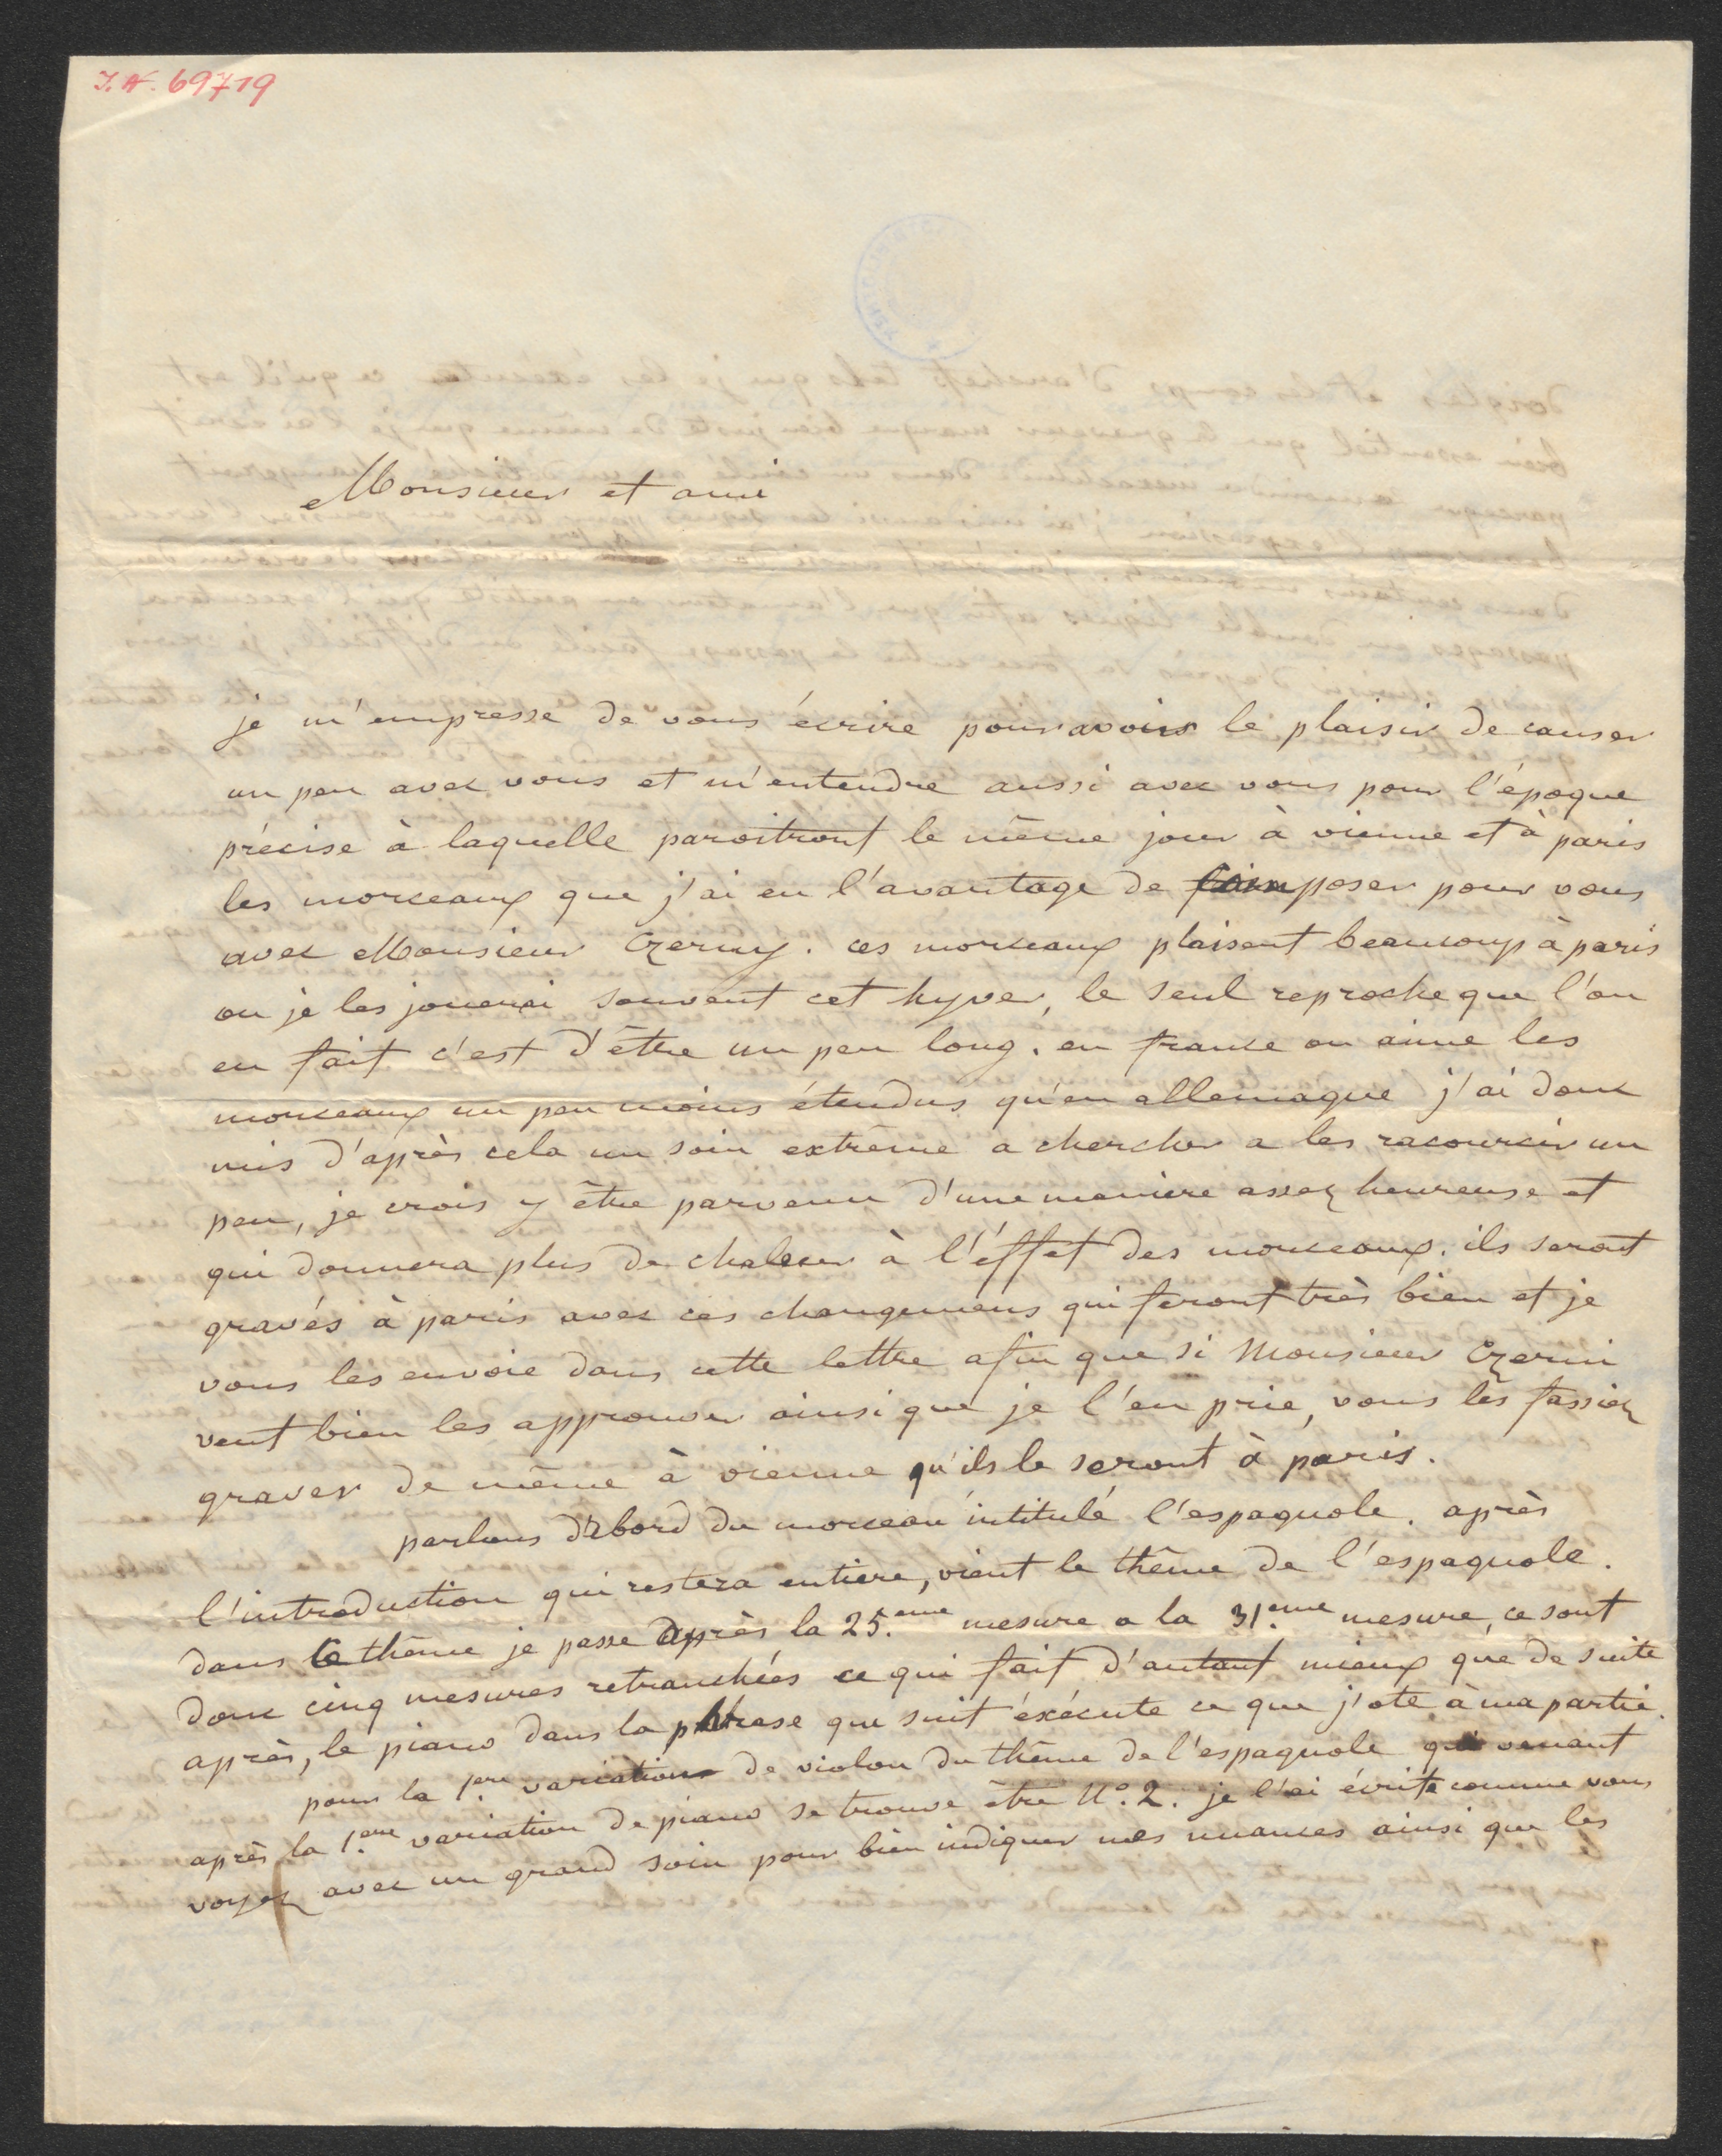 I.N. 69719
Monsieur et ami
je m'empresse de vous écrire pour avoir le plaisir de causer
un peu avec vous et m'entendre aussi avec vous pour l'époque
précise à laquelle paroitront le même jour à vienne et à paris
les morceaux que j'ai eu l'avantage de composer pour vous
avec Monsieur Czerny. ces morceaux plaisent beaucoup à paris
ou je les jouerai souvent cet hyver, le seul reproche que l'on
en fait c'est d'être un peu long. en france on aime les
morceaux un peu moins étendus qu'en allemagne j'ai donc
mis d'après cela un soin extrême a chercher a les racourcir un
peu, je crois y être parvenu d'une maniere assez heureuse et
qui donnera plus de chaleur à l'éffet des morceaux. ils seront
gravés à paris avec ces changemens qui feront très bien et je
vous les envoie dans cette lettre afin que si Monsieur Czerni
veut bien les approuver ainsi que je l'en prie, vous les fassiez
graver de même à vienne qu'ils le seront à paris.
parlons d'abord du morceau intitulé l'espagnole. après
l'introduction qui restera entiere, vient le thême de l'espagnole.
dans le thême je passe après la 25.eme mesure a la 31.eme mesure, ce sont
donc cinq mesures retranchées ce qui fait d'autant mieux que de suite
après, le piano dans la phrase qui suit éxécute ce que j'ote à ma partie.
pour la 1.ere variation de violon du thême de l'espagnole qui venant
après la 1.ere variation de piano se trouve être N.º 2. je l'ai écrite comme vous
voyez avec un grand soin pour bien indiquer mes nuances ainsi que les